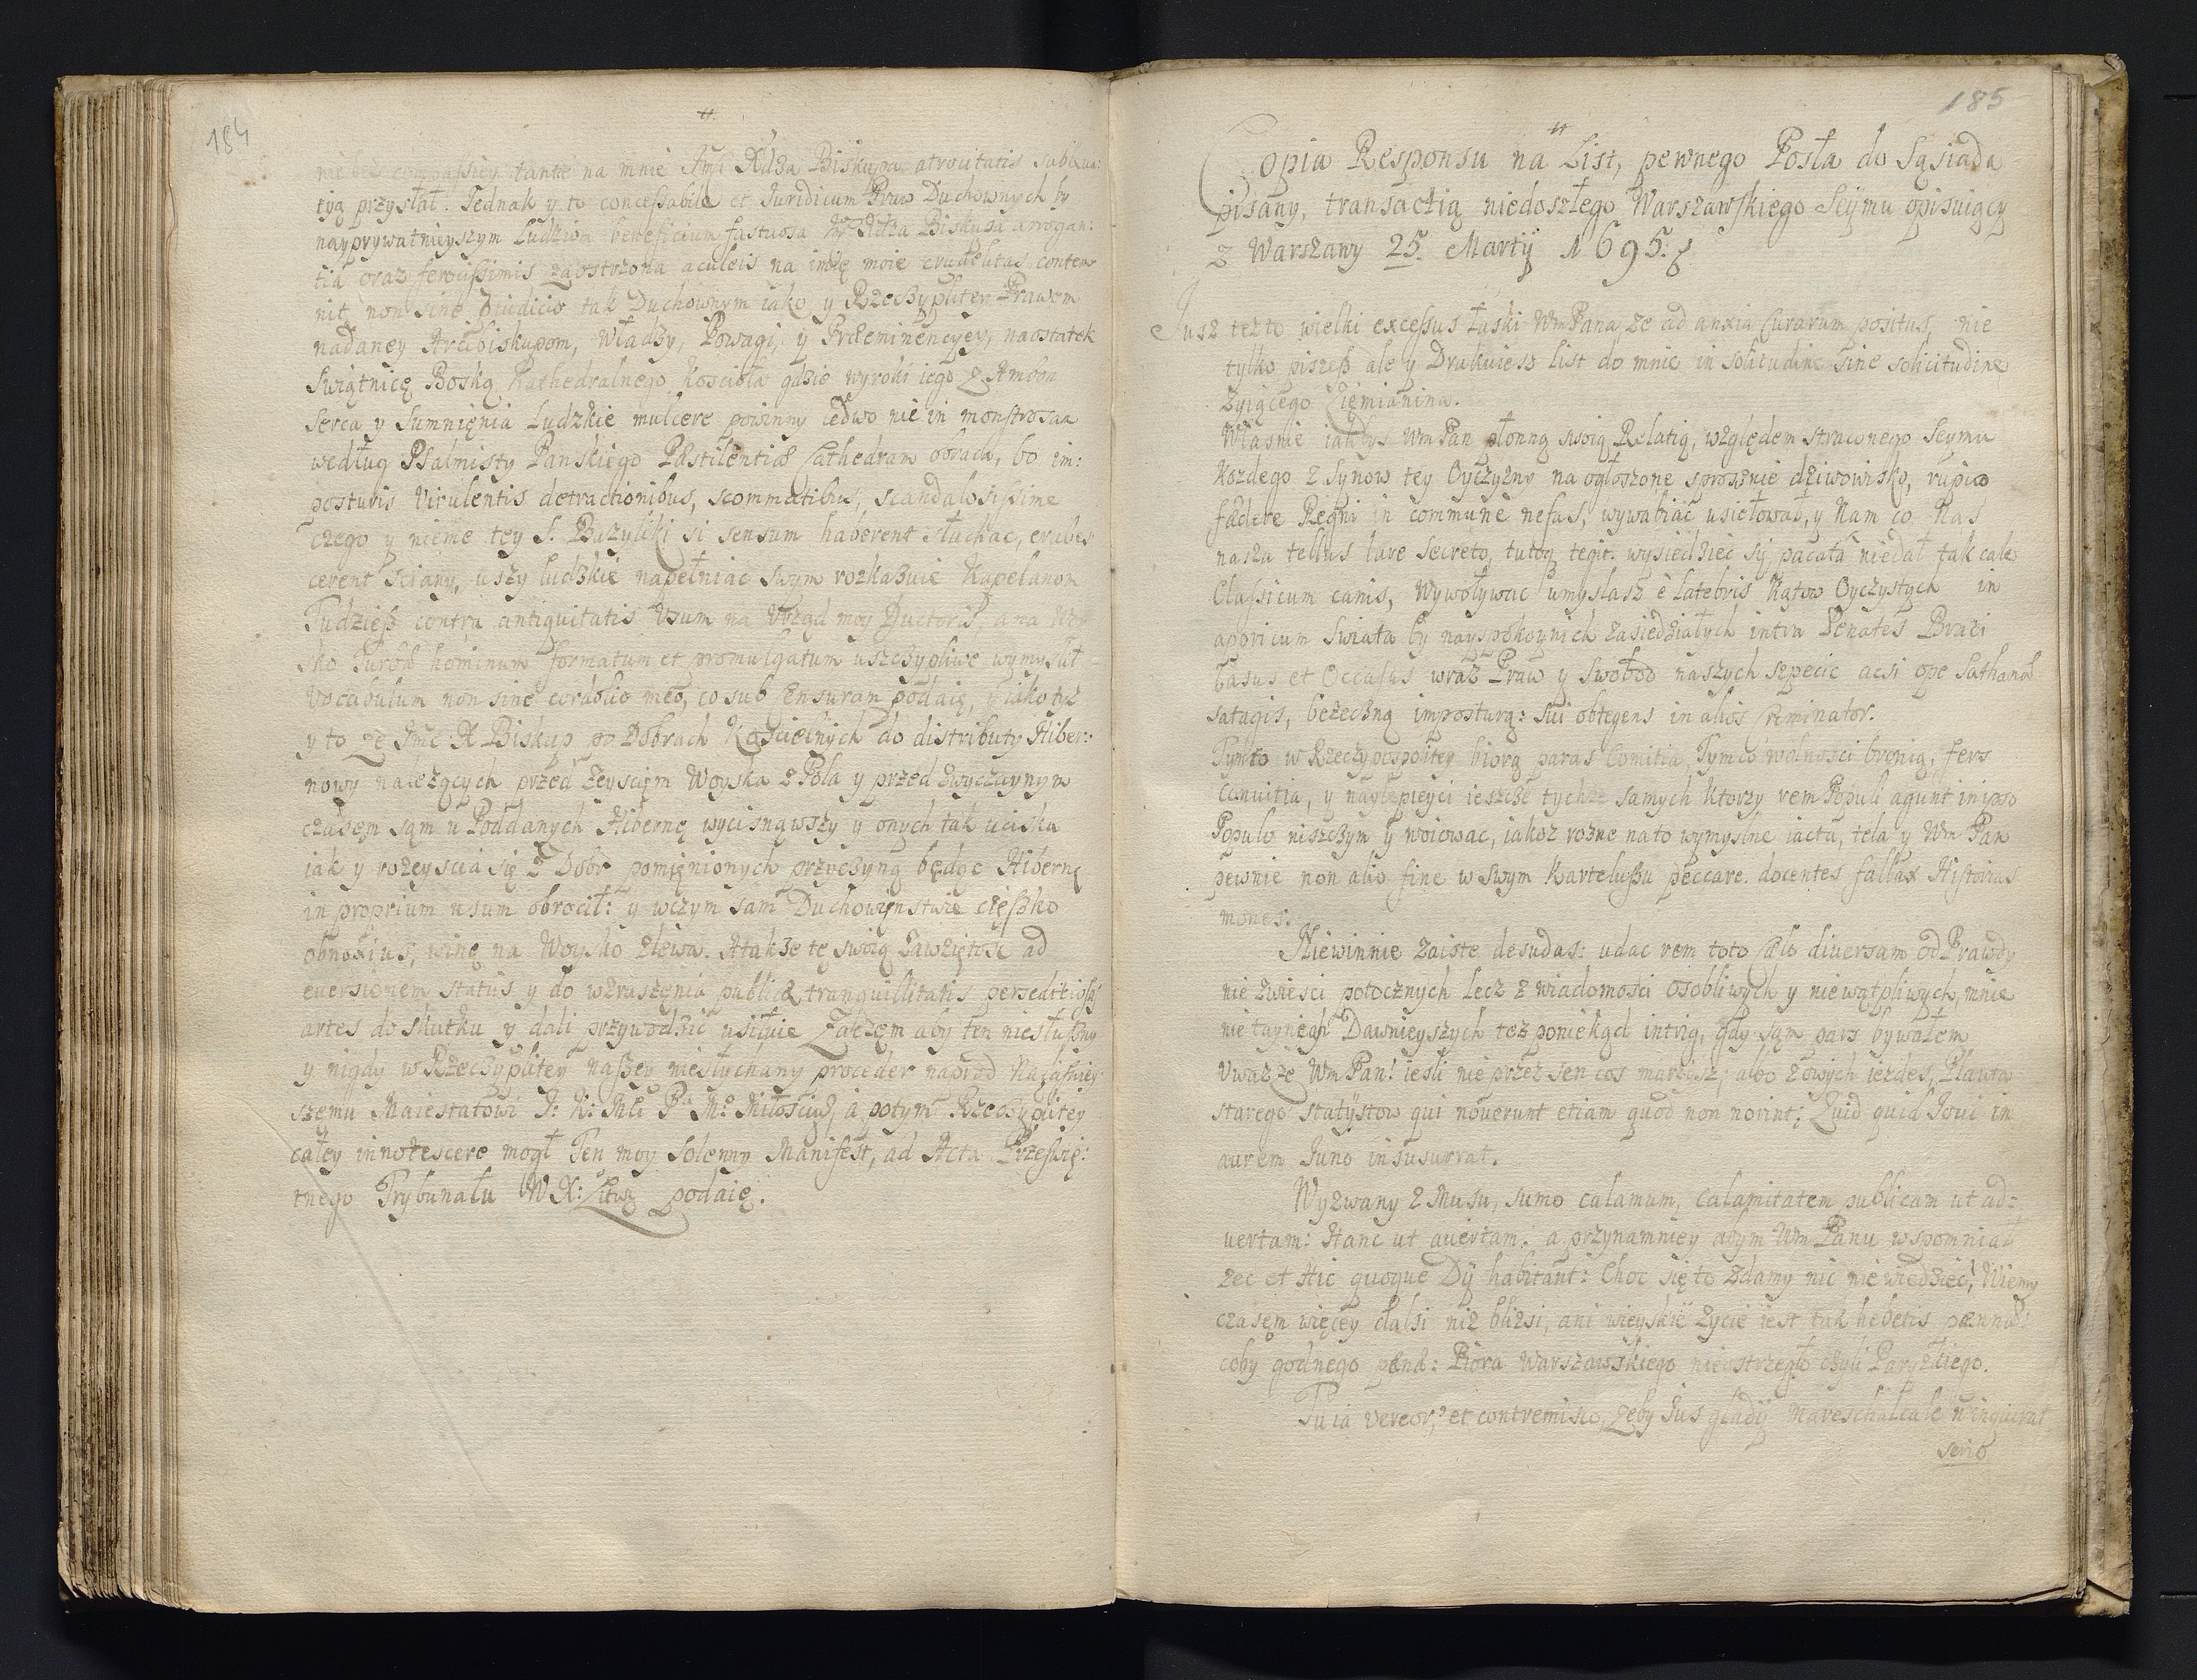 184
nie bez compassiey tantæ na mnie Jmci Xdza Biskupa atrocitatis
tyą przysłał. Jednak y to concessabile et Juridicum Praw Duchownych by
nayprywatnieyszym Ludziom beneficium fastuosa Xdza Biskupa arrogan:
tia oraz ferocissimis zaostrzona aculeis na imię moie crudelitas contem
nit, non sine præiudicio tak Duchownym iako y Rzeczyplitey Prawem
nadaney Arcibiskupom, Władzy, Powagi, y Præeminencyey, naostatek
Swiątnicę Boską Kathedralnego Koscioła gdzie wyroki iego z Ambon
Serca y Sumnięnia Ludzkie mulcere powinny ledwo nie in monstrosam
według Psalmisty Panskiego Pestilentiæ Cathedram obraca, bo im:
posturis virulentis detractionibus, scommatibus, scandalosissime
czego y nieme tey S. Bazyliki si sensum haberent słuchac, erubes
cerent sciany, uszy ludzkie napełniac swym rozkazuie Kapelanom
Tudziesz contra antiquitatis usum na Urząd moy Ductoris, ana
sko Turba hominum formatum et promulgatum uszczypliwe wymyslił
vocabulum non sine cordolio meo, co sub Censuram podaię, y iako tyz
y to ze Jmc X Biskup po Dobrach Koscielnych do distributy Hiber:
nowy należących przed zeyscięm Woyska z Pola y przed zwyczaynym
czasęm sąm u Poddanych Hibernę wycisnąwszy y onych tak uciska
iak y rozeyscia się z Dobr pomięnionych przyczyną będąc Hibernę
in proprium usum obrocił: y wczym sam Duchowięnstwie cięszko
obnoxius, winę na Woysko zlewa. Atakze tę swoią zawziętosc ad
euersionem status y do wzruszęnia publicæ tranquillitatis per seditiosas
artes do skutku y dali przywodzic usiłuie Zaczem aby ten niesłuszny
y nigdy w Rzeczyplitey naszey niesłychany proceder naprod Naiasniey
szemu Maiestatowi J: K: Mći Pa Mo Miłosciwo, a potym Rzeczyplitey
całey innotescere mogł Ten moy Solenny Manifest, ad Acta Przeswię:
tnego Trybunału W X: Litwo podaię.
185
Copia Responsu na List, pewnego Posła do Sąsiada
pisany, transactią niedoszłego Warszawskiego Seymu opisuiący
z Warszawy 25. Martij 1695.
Jusz tez to wielki excessus łaski Wm Pana ze ad anxia Curarum positus, nie
tylko piszesz ale y Drukuiesz list do mnie in solitudine sine solicitudine
zyiącego Ziemianina.
Własnie iakbys Wm Pan płonną swoią Relatią, względem strawnego Seymu
kozdego z Synow tey Oyczyzny na ogłoszone sprosznie dziwowisko, rupto
fædere Regni in commune nefas, wywabiac usiełował, y Nam co Nas
nasza tellus lare secreto, tutoq tegit. wysiedziec się pacata niedał tak cale
Classicum canis, Wywoływac umyslasz è latebris Kątow Oyczystych in
apricum Swiata by nayspokoynich zasiedziałych intra Penates Braci
Casus et Occasus wraz Praw y Swobod naszych szpecic acsi ope Sathanæ
satagis, bezeczną imposturą: sui obtegens in alios Criminator.
Tymto w Rzeczypospolitey biorą paras Comitia, Tymco wolnosci bronią, fers
conuitia, y naylepieyci ieszcze tychze samych ktorzy rem Populi agunt in ipso
Populo niszczym y woiowac, iakoz rozne nato wymyslne iacta, tela y Wm Pan
pewnie non alio fine w swym Karteluszu peccare docentes fallax Historias
mones.
Niewinnie zaiste desudas: udac rem toto Cælo diuersam od Prawdy
nie zwiesci potocznych lecz z wiadomosci osobliwych y niewątpliwych, mnie
nie taynieysz Dawnieyszych tez poniekąd intrig, gdy sąm pars bywałem
Uwaz ze Wm Pan! iesli nie przez sen cos marzysz; albo zowych iezdes, Plauta
starego statystow qui nouerunt etiam quod non norint; Quid quid Joui in
aurem Juno insusurrat.
Wyzwany z Musu, sumo calamum, calamitatem publicam ut ad=
uertam: Hanc ut auertam: a przynamniey abym Wm Panu wspomniał
zec et Hic quoque Dij habitant: Choc się to zdamy nic nie wiedziec, Wiemy
czasęm więcey dalsi niz blizsi, ani wieyskie zycie iest tak hebetis pænnæ:
coby godnego pænæ: Piora Warszawskiego nieostrzegło czyli Paryzkiego.
Tu ia vereor, et contremisco, zeby Jus gladij Mareschalcale n inguirat
serio